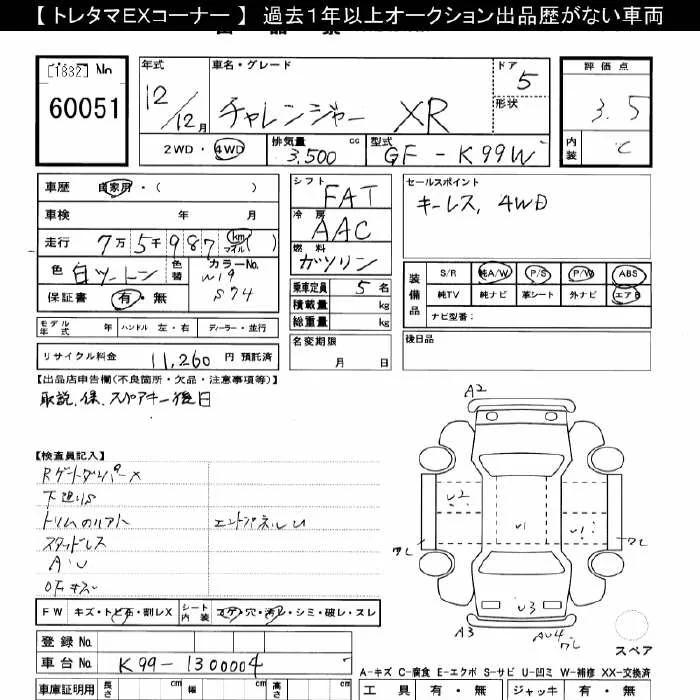 【 トレタマＥＸコーナー 】 過去１年以上オークション出品歴がない車両
[1882] No
60051
年式
12/12月
車名・グレード
チャレンジャー XR
ドア
5
形状
評価点
3.5
内装
C
2WD・4WD
排気量
3,500 cc
型式
GF-K99W
車歴 自家用・( )
車検 年 月
走行 7万5千987 km マイル ( )
色 白ツートン 色替 カラーNo.
W19
574
保証書 有・無
モデル年式 年 ハンドル 左・右 ディーラー・並行
リサイクル料金 11,260 円 預託済
シフト
FAT
冷房
AAC
燃料
ガソリン
乗車定員 5 名
積載量 kg
総重量 kg
名変期限
月 日
セールスポイント
キーレス、4WD
装備品
S/R 純A/W P/S P/W ABS
純TV 純ナビ 革シート 外ナビ エアB
ナビ型番:
後日品
【出品店申告欄(不良箇所・欠品・注意事項等)】
取説、保、スペアキー後日
【検査員記入】
Rゲートダンパー×
下廻りS
トリムのルアト
エンドパネルU
スタッドレス
A・U
FW キズ・トビ石・割レX
シート内装 コゲ・穴・汚レ・シミ・破レ・スレ
登録 No.
車台 No. K99-1300004
車庫証明用 長さ cm 幅 cm 高さ cm
A2
U2
U1
U1
ワレ
ワレ
U3
A3
AU4
ワレ
スペア
A-キズ C-腐食 E-エクボ S-サビ U-凹ミ W-補修 XX-交換済
工具 有・無 ジャッキ 有・無